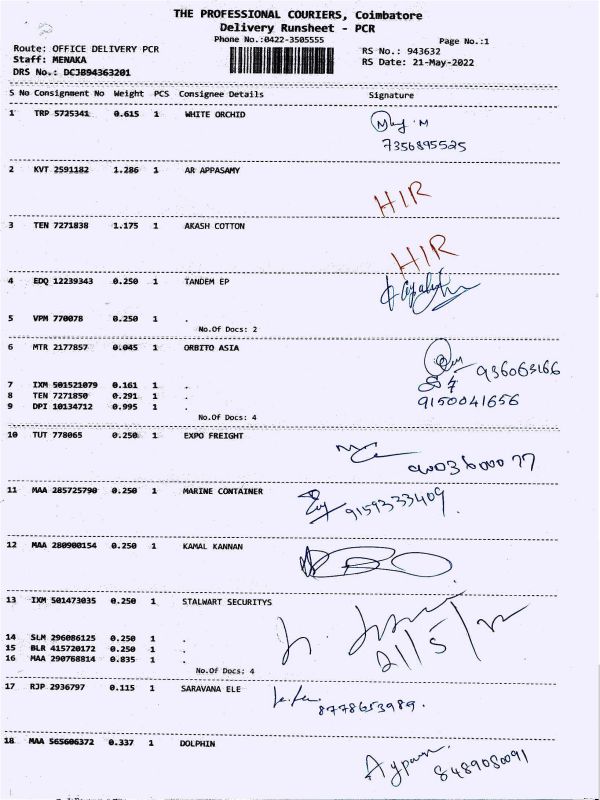 THE PROFESSIONAL COURIERS, Coimbatore
Delivery Runsheet - PCR
Phone No.:0422-3505555
Page No.:1
Route: OFFICE DELIVERY PCR
RS No.: 943632
Staff: MENAKA
RS Date: 21-May-2022
DRS No.: DCJB94363201
S No Consignment No Weight PCS Consignee Details Signature
1 TRP 5725341 0.615 1 WHITE ORCHID
7356895525
2 KVT 2591182 1.286 1 AR APPASAMY
HIR
3 TEN 7271838 1.175 1 AKASH COTTON
HIR
4 EDQ 12239343 0.250 1 TANDEM EP
5 VPM 770078 0.250 1 .
No.Of Docs: 2
6 MTR 2177857 0.045 1 ORBITO ASIA
936063166
7 IXM 501521079 0.161 1 .
8 TEN 7271850 0.291 1 .
9 DPI 10134712 0.995 1 .
9150041656
No.Of Docs: 4
10 TUT 778065 0.250 1 EXPO FREIGHT
11 MAA 285725790 0.250 1 MARINE CONTAINER
9159333409
12 MAA 280900154 0.250 1 KAMAL KANNAN
13 IXM 501473035 0.250 1 STALWART SECURITYS
21/5/22
14 SLM 296086125 0.250 1 .
15 BLR 415720172 0.250 1 .
16 MAA 290768814 0.835 1 .
No.Of Docs: 4
17 RJP 2936797 0.115 1 SARAVANA ELE
8778653989.
18 MAA 565606372 0.337 1 DOLPHIN
8489080091